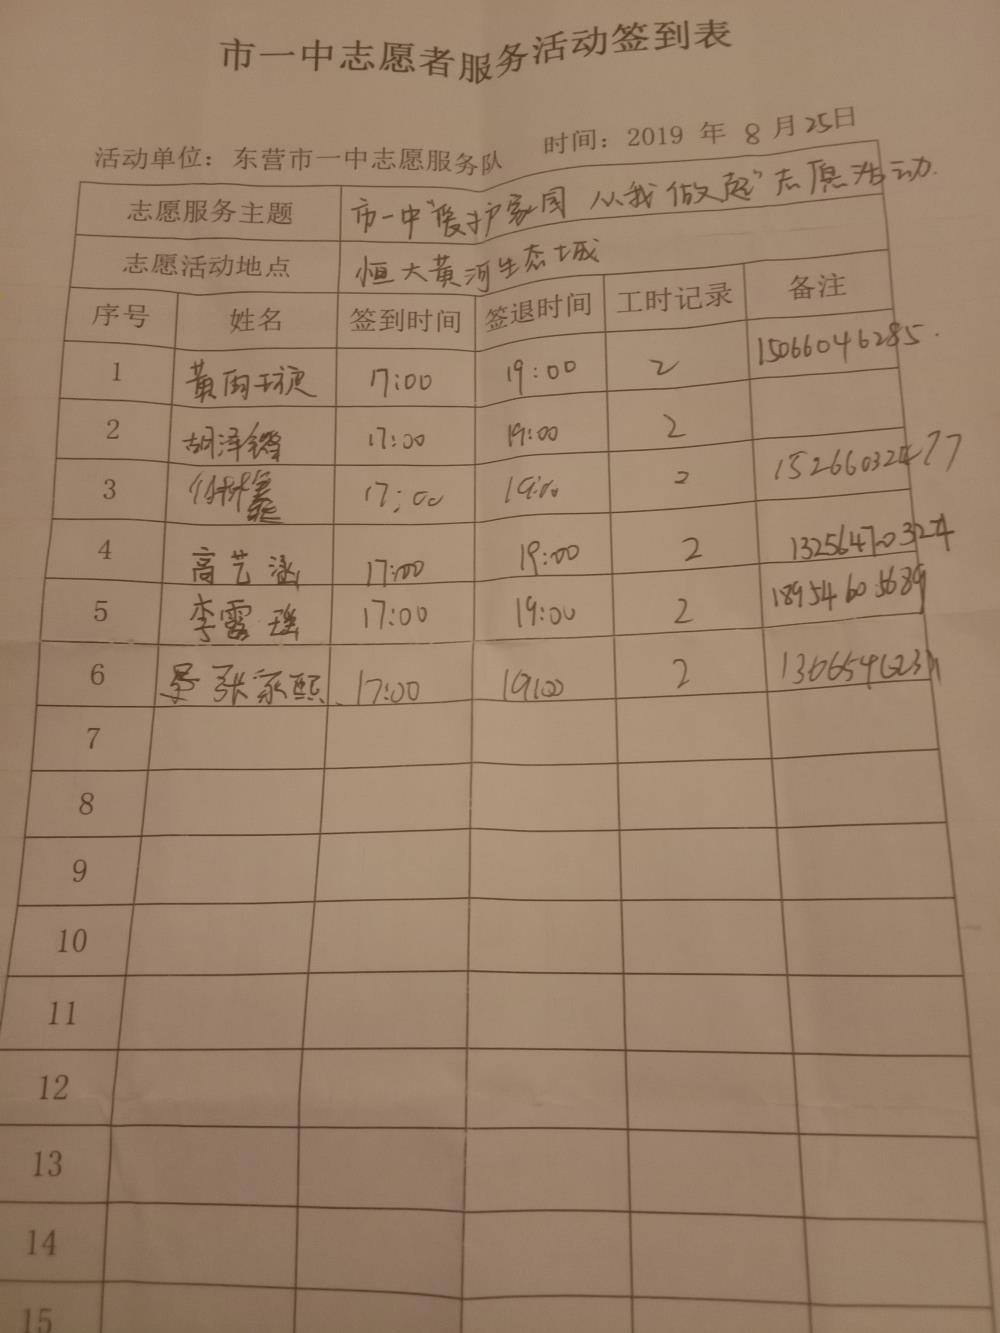 市一中志愿者服务活动签到表
活动单位：东营市一中志愿服务队 时间：2019 年 8 月 25日
志愿服务主题 市一中“爱护家园 从我做起”志愿活动.
志愿活动地点 恒大黄河生态城
序号 姓名 签到时间 签退时间 工时记录 备注
1 黄 17:00 19:00 2 15066046285.
2 胡泽锋 17:00 19:00 2
3 17:00 19:00 2 15266032477
4 高艺涵 17:00 19:00 2 13256470324
5 李露瑶 17:00 19:00 2 18954605689
6 张家熙 17:00 19:00 2
7
8
9
10
11
12
13
14
15